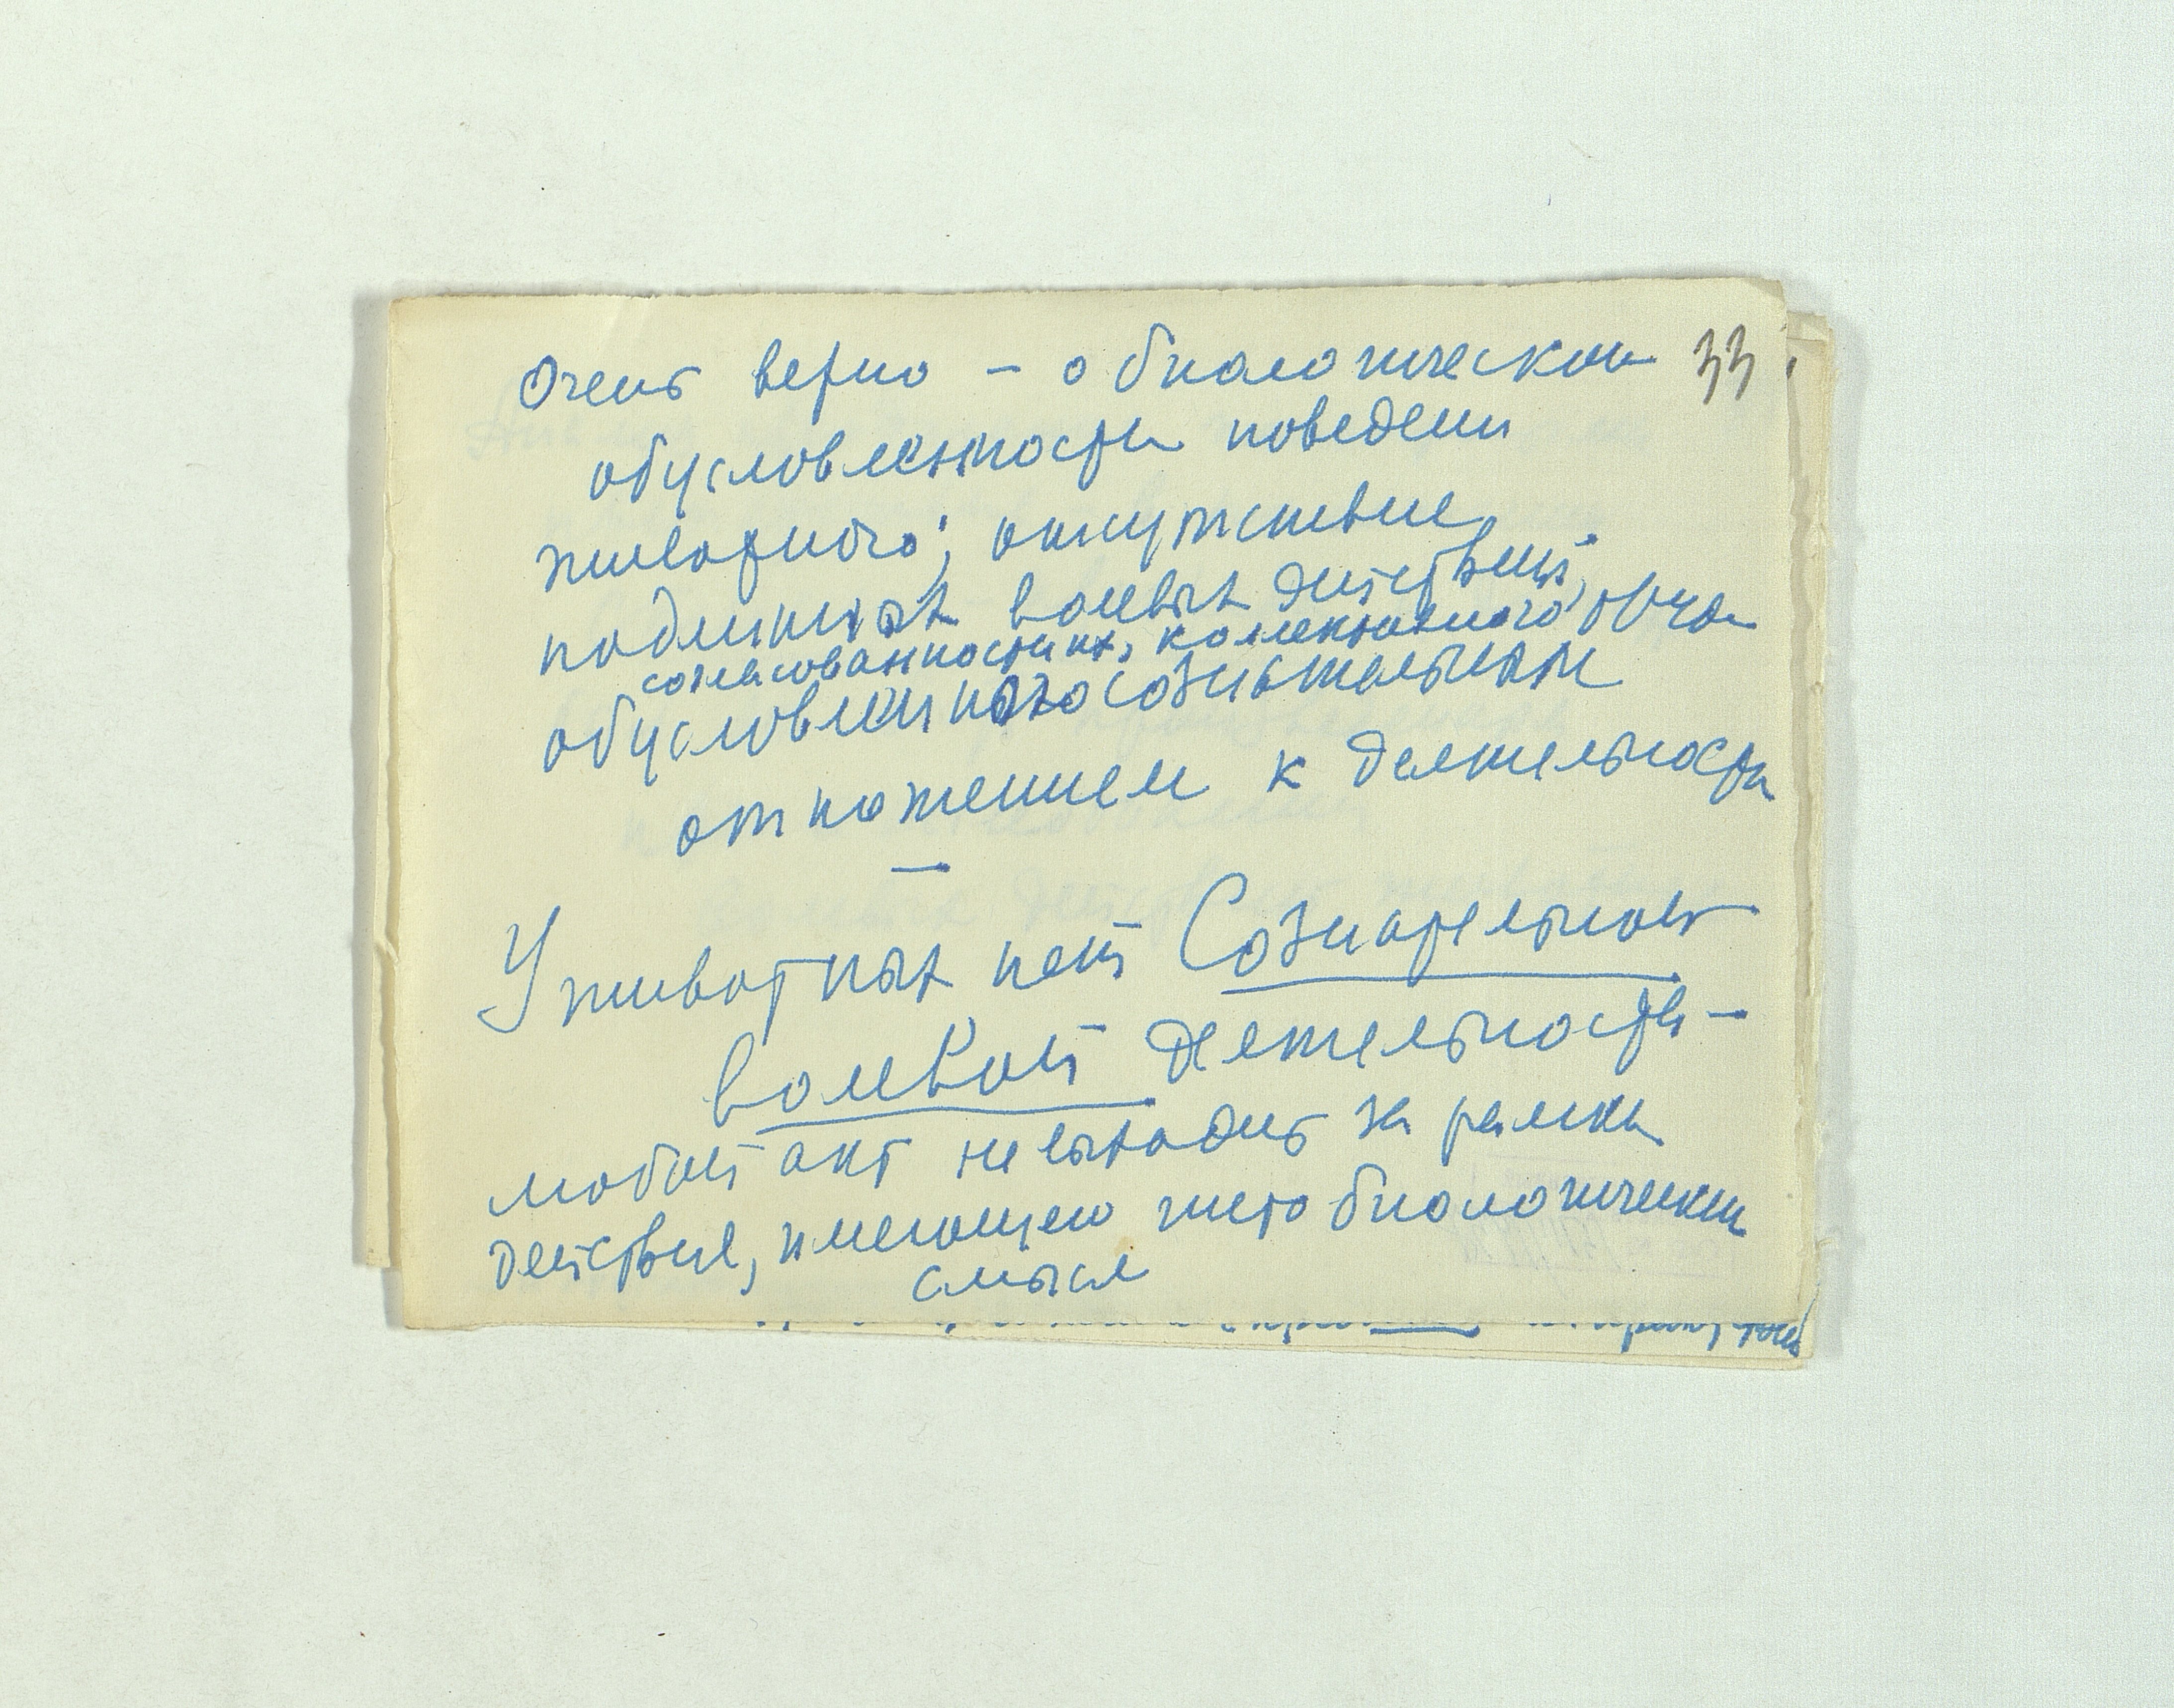 Очень верно – о биологической 33
обусловленности поведени
животного; отсутствие
подлинных волевых действий,
согласованности их, коллективного
обусловленного сознательным
отношением к деятельности
—
У животных нет Сознательной
волевой деятельности –
любой акт не выходит за рамки
действия, имеющего чисто биологический
смысл